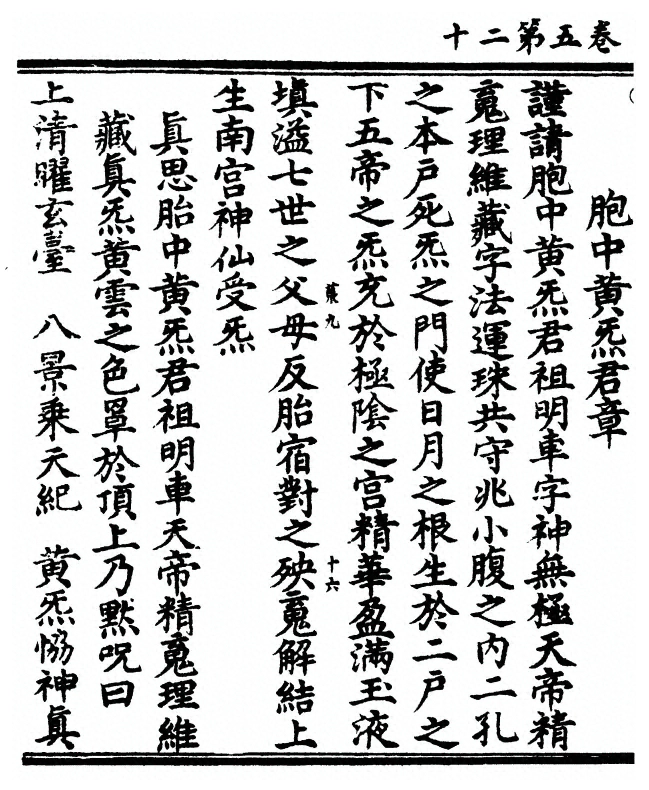 卷五第二十
胞中黃炁君章
謹請胞中黃炁君祖明車字神無極天帝精
䰟理維藏字法運珠共守兆小腹之内二孔
之本戶死炁之門使日月之根生於二戶之
下五帝之炁充於極陰之宮精華盈滿玉液
菐九
十六
填溢七世之父母反胎宿對之殃䰟解結上
生南宮神仙受炁
眞思胎中黃炁君祖明車天帝精䰟理維
藏眞炁黃雲之色罩於頂上乃黙呪曰
上清曜玄臺　八景乘天紀　黃炁恊神眞